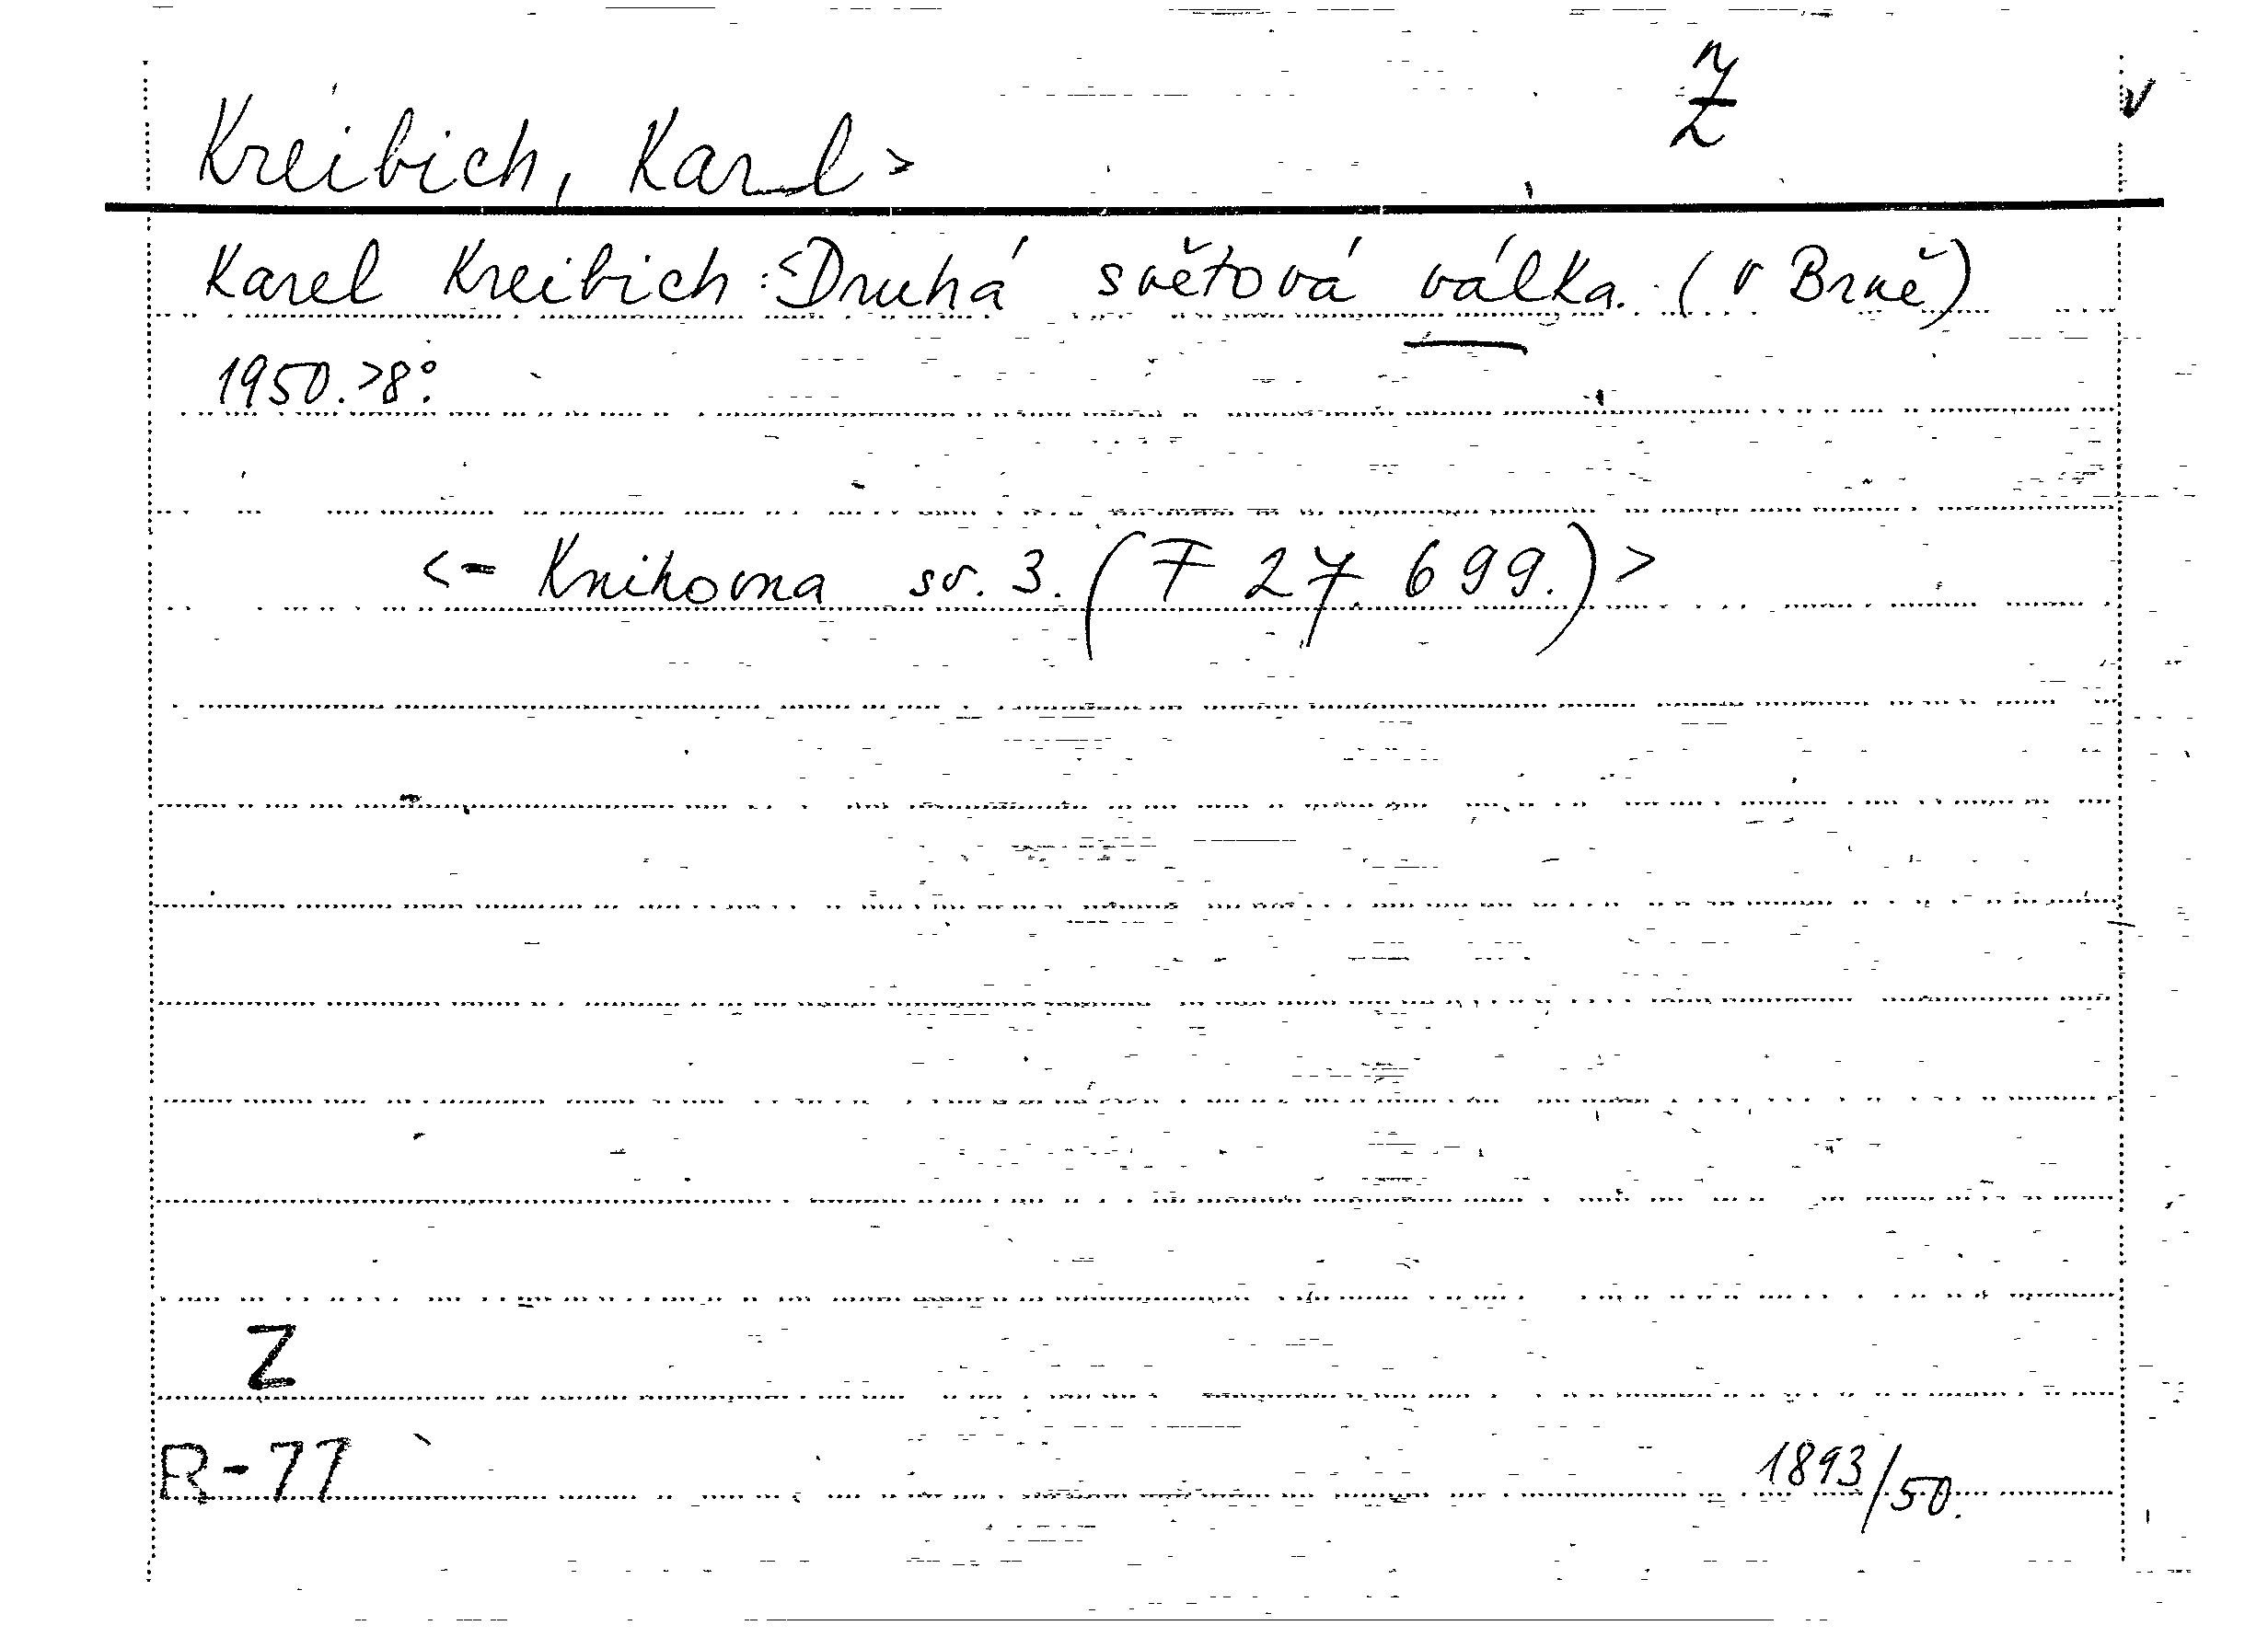 Z
v
Kreibich, Karl>
Karel Kreibich:<Druhá světová válka. (v Brně)
1950.>8°.
<- Knihovna sv. 3. (F 27.699.)>
Z
R-77
1893/50.